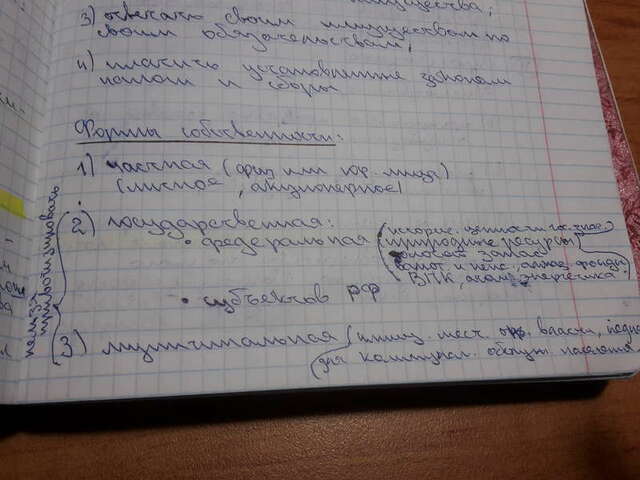 3) отвечать своим имуществом по
своим обязательствам;
4) платить установленные законом
налоги и сборы
Формы собственности:
1) частная (физ или юр. лица)
(личное, акционерное)
2) государственная:
• федеральная (историс. ценности гос. знач.
природные ресурсы
запас
фонды
ВПК, энергетика
• субъектов РФ
3) муниципальная (имущ. мест. власти,
для коммунал. обслуж. населения
нельзя
приватизировать